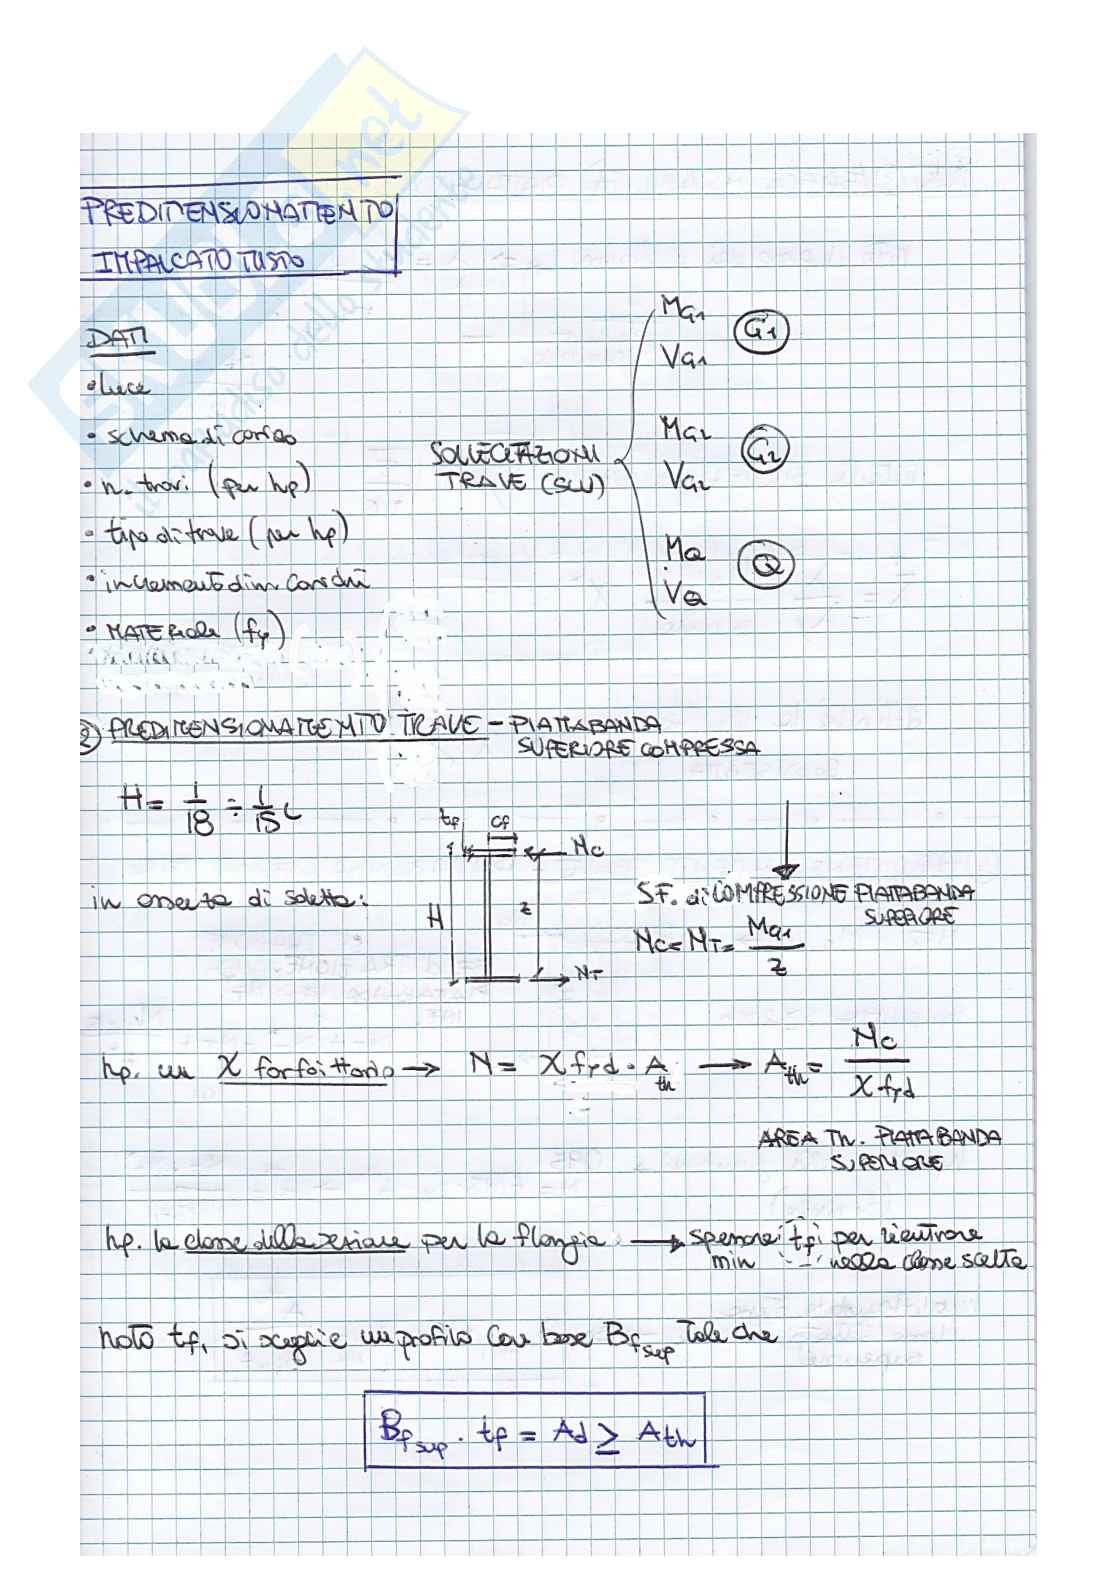 PREDIMENSIONAMENTO
IMPALCATO MISTO
DATI
• luce
• schema di carico
• n. travi (per hp)
• tipo di trave (per hp)
• incremento dim carichi
• MATERIALI (fy)
SOLLECITAZIONI
TRAVE (SLU)
MG1
VG1
G1
MG2
VG2
G2
MQ
VQ
Q
2) PREDIMENSIONAMENTO TRAVE - PIATTABANDA
SUPERIORE COMPRESSA
H = 1/18 ÷ 1/15 L
in assenza di soletta:
tf cf
Nc
H
z
NT
SF. di COMPRESSIONE PIATTABANDA
SUPERIORE
Nc = NT = MG1/z
hp. un χ forfaittario → N = χ fyd · Ath → Ath = Nc/χ fyd
AREA Th. PIATTABANDA
SUPERIORE
hp. la classe della sezione per la flangia → spessore tf per rientrare
min nella classe scelta
noto tf, si sceglie un profilo con base Bfsup tale che
Bfsup · tf = Ad ≥ Ath